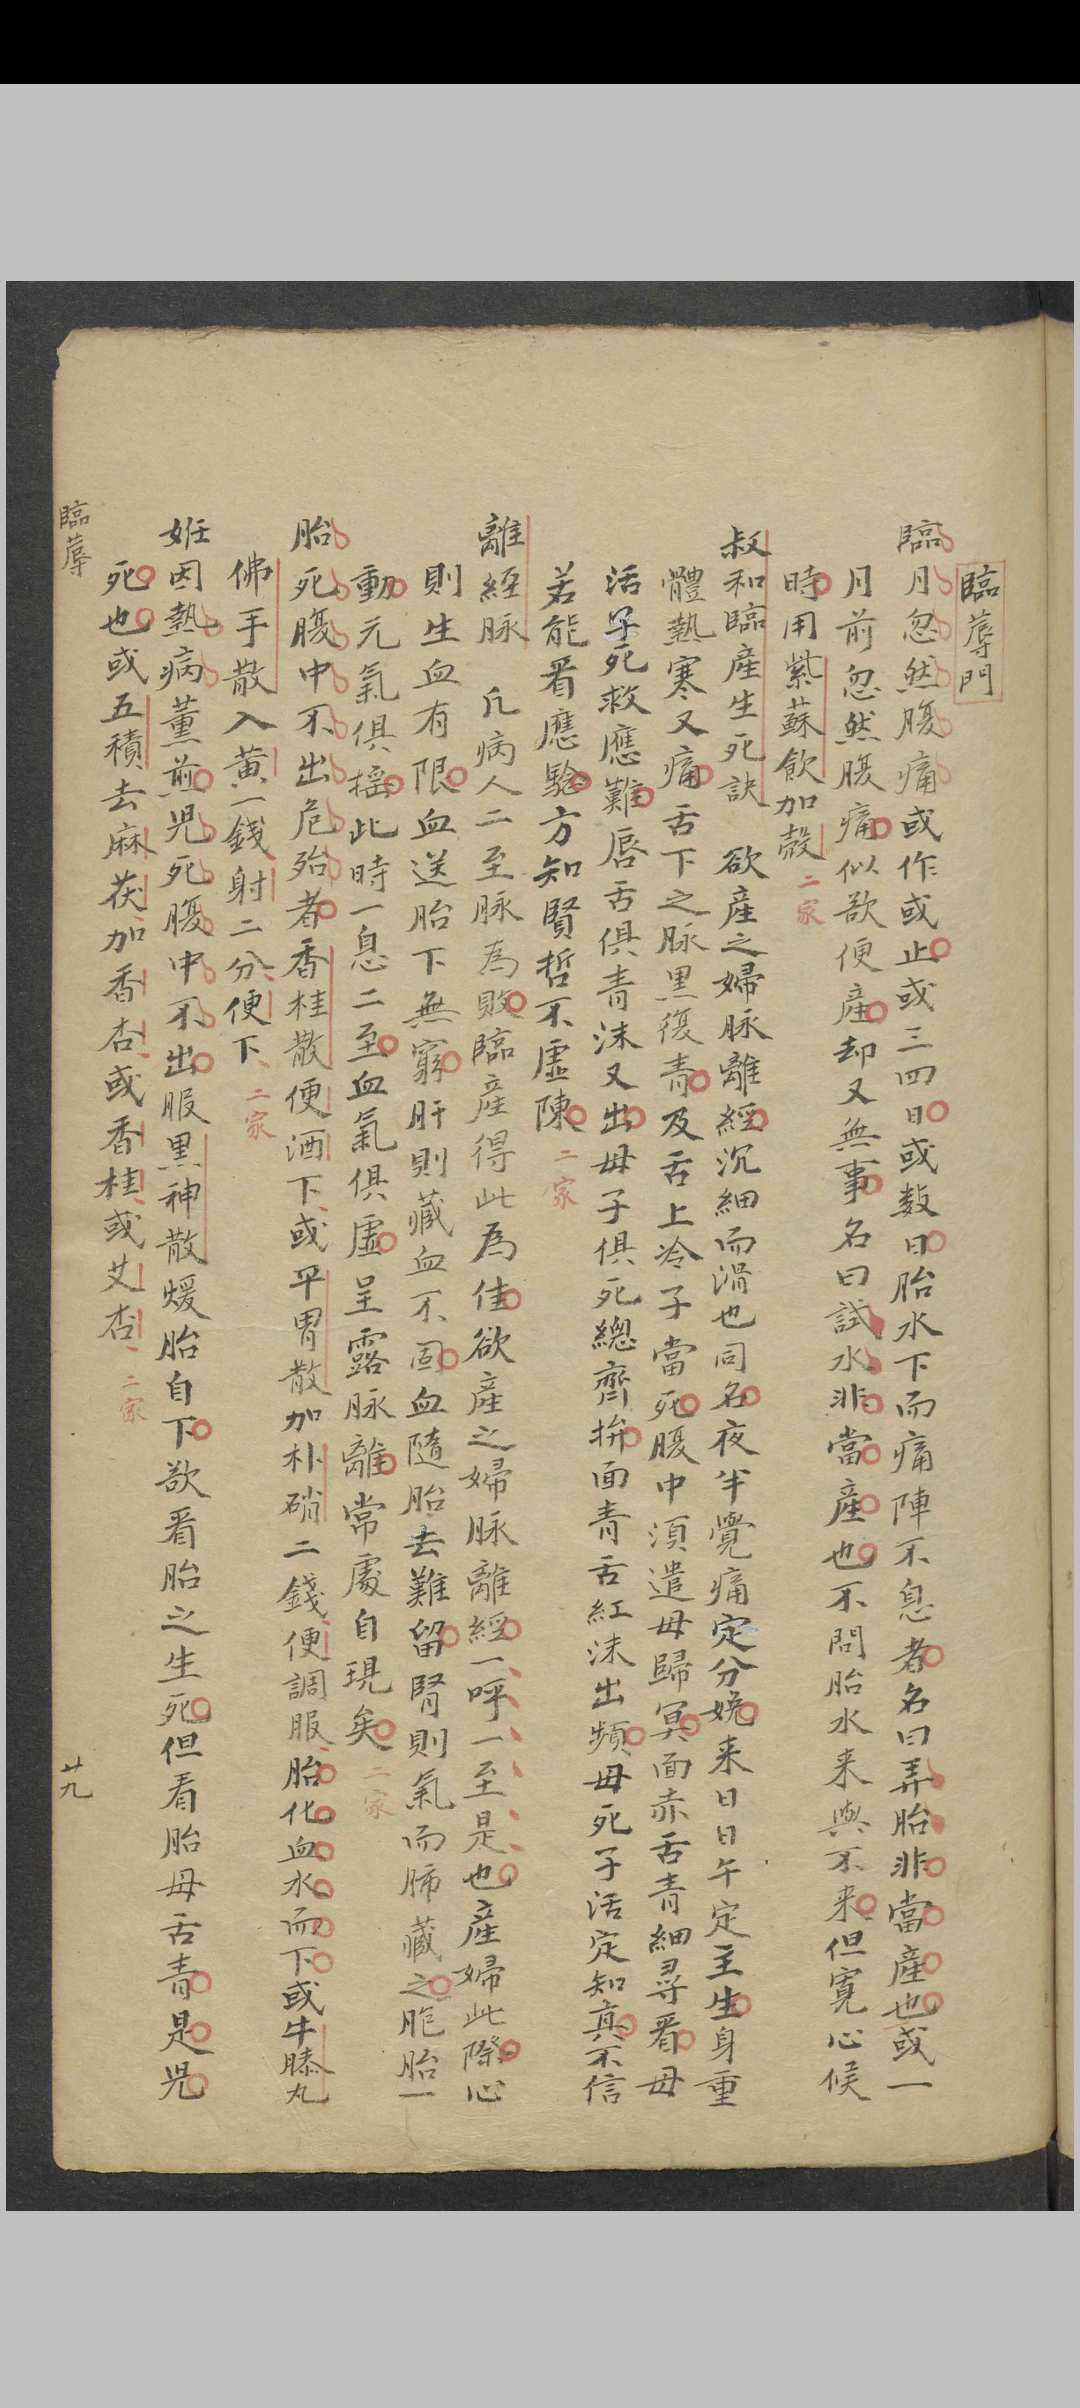 臨蓐門
臨月忽然腹痛或作或止或三四日或数日胎水下而痛陣不息者名曰弄胎非當產也或一
月前忽然腹痛似欲便產却又無事名曰試水非當產也不問胎水来與不来但寬心候
時用紫蘇飲加殼二家
叔和臨產生死訣 欲產之婦脉離經沉細而滑也同名夜半覺痛定分娩来日日午定主生身重
體熱寒又痛舌下之脉黒復青及舌上冷子當死腹中須遣母歸冥面赤舌青細尋看母
活子死救應難唇舌俱青沫又出母子俱死總齊拚面青舌紅沫出頻母死子活定知真不信
若能看應驗方知賢哲不虛陳二家
離經脉 凡病人二至脉為敗臨產得此為佳欲產之婦脉離經一呼一至是也產婦此際心
則生血有限血送胎下無窮肝則藏血不固血隨胎去難留腎則氣而肺藏之胞胎一
動元氣俱搖此時一息二至血氣俱虛呈露脉離常處自現矣二家
胎死腹中不出危殆者香桂散便酒下或平胃散加朴硝二錢便調服胎化血水而下或牛膝丸
佛手散入黄一錢射二分便下二家
妊因熱病薰煎児死腹中不出服黒神散煖胎自下欲看胎之生死但看胎母舌青是児
死也或五積去麻茯加香杏或香桂或艾杏二家
臨蓐
廿九